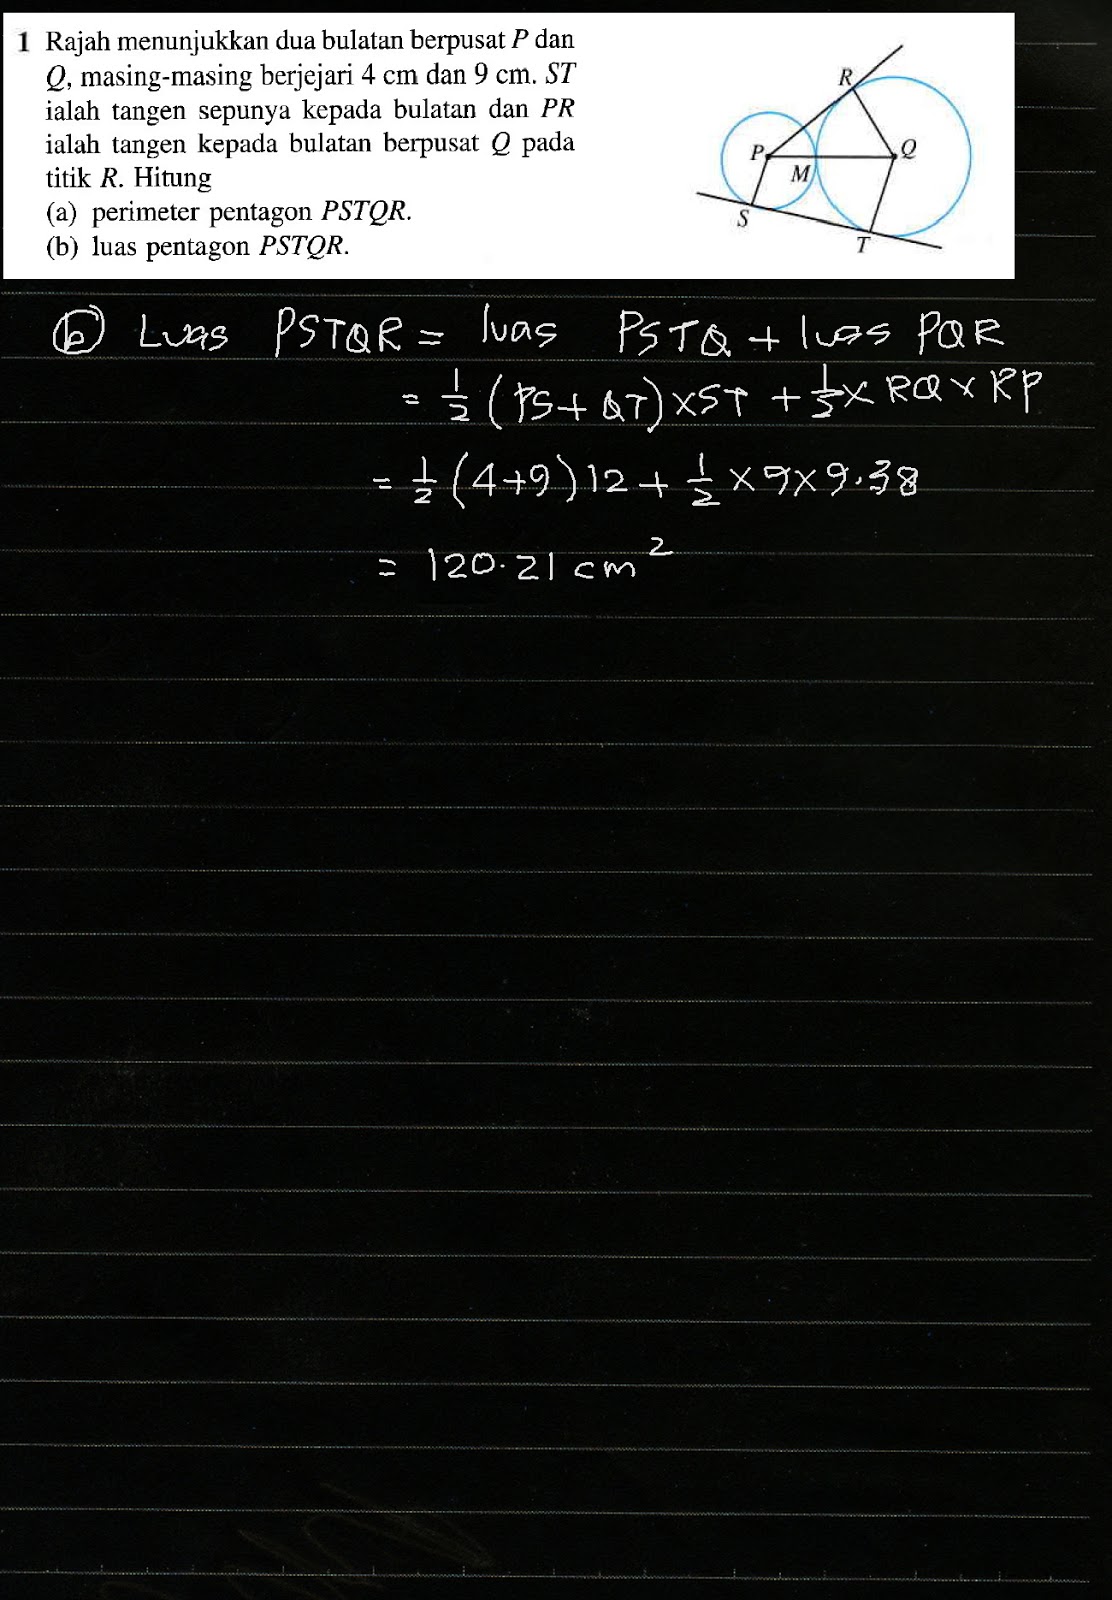 1 Rajah menunjukkan dua bulatan berpusat P dan
Q, masing-masing berjejari 4 cm dan 9 cm. ST
ialah tangen sepunya kepada bulatan dan PR
ialah tangen kepada bulatan berpusat Q pada
titik R. Hitung
(a) perimeter pentagon PSTQR.
(b) luas pentagon PSTQR.
R
P
M
Q
S
T
(b) Luas PSTQR = luas PSTQ + luas PQR
= 1/2 (PS + QT) × ST + 1/2 × RQ × RP
= 1/2 (4+9) 12 + 1/2 × 9 × 9.38
= 120.21 cm²